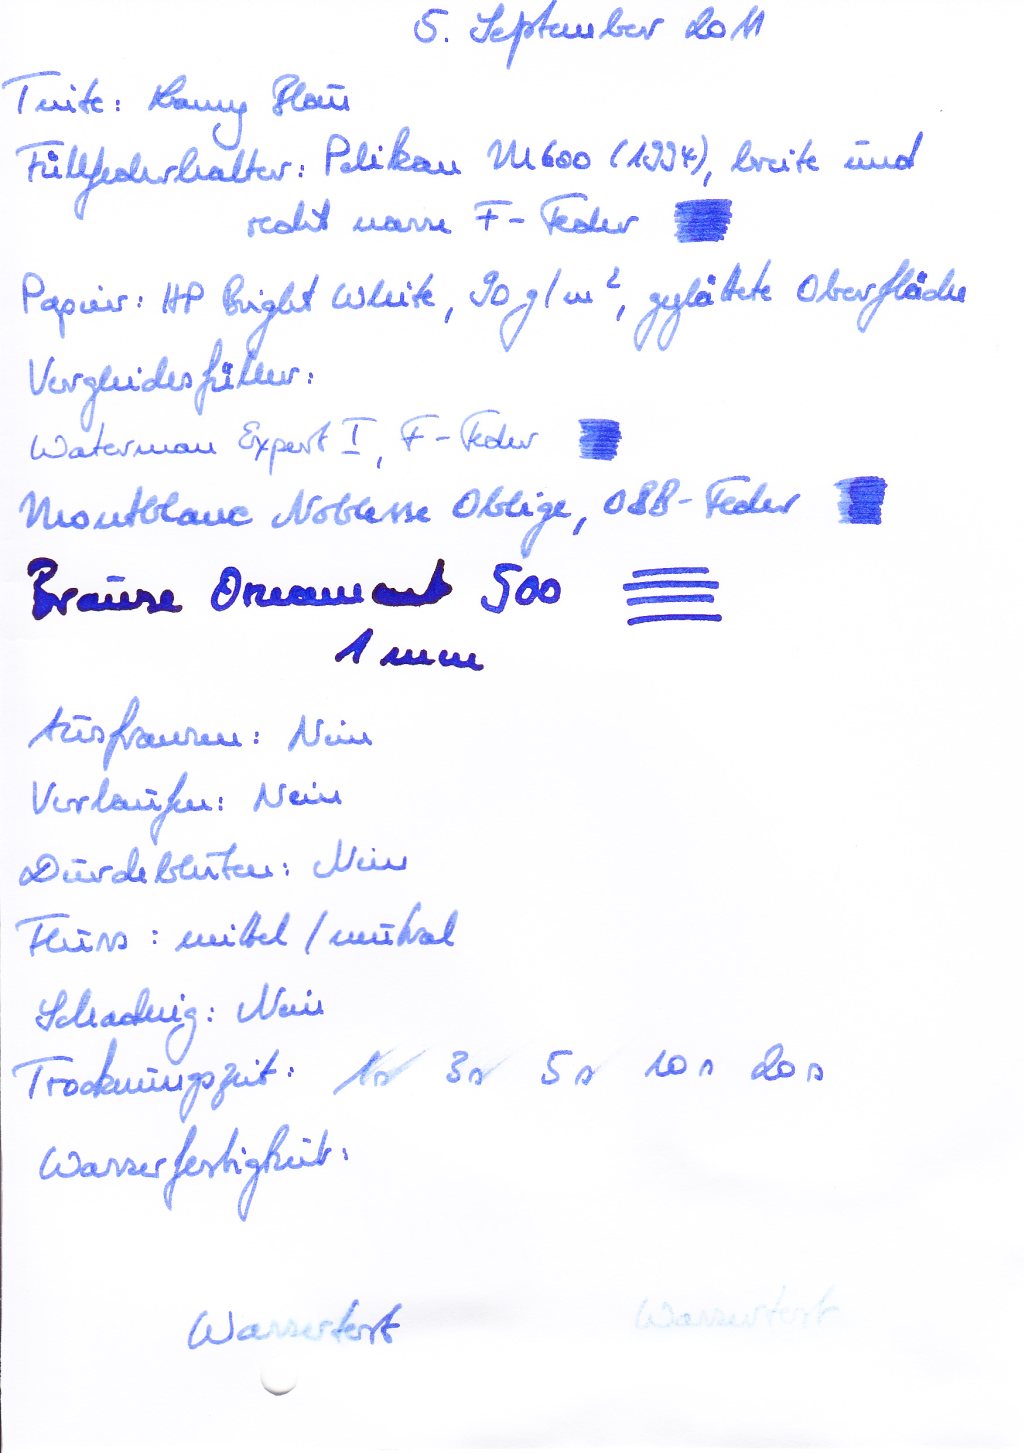 5. September 2011
Tinte: Lamy Blau
Füllfederhalter: Pelikan M600 (1994), breite und
recht nasse F-Feder
Papier: HP Bright White, 90 g/m², geglättete Oberfläche
Vergleichsfüller:
Waterman Expert I, F-Feder
Montblanc Noblesse Oblige, OBB-Feder
Brause Ornament 500
1 mm
Ausfransen: Nein
Verlaufen: Nein
Durchbluten: Nein
Fluss: mittel / neutral
Schattierung: Nein
Trocknungszeit: 1s 3s 5s 10s 20s
Wasserfestigkeit:
Wassertest Wassertest